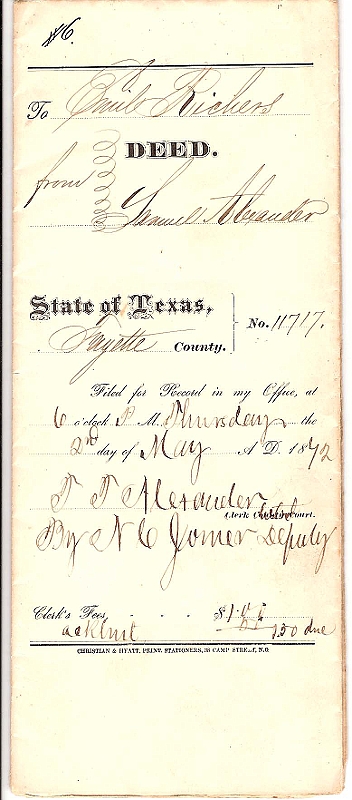 To Emil Richers
DEED.
from
Samuel Alexander
State of Texas,
Fayette County.
No. 11717.
Filed for Record in my Office, at
6 o'clock P. M. Thursday the
2nd day of May A. D. 1872
Alexander
Clerk Court.
By N C Joiner Deputy
Clerk's Fees . . . . $1.
150 due
CHRISTIAN & HYATT, PRINT. STATIONERS, 38 CAMP STREET, N.O.